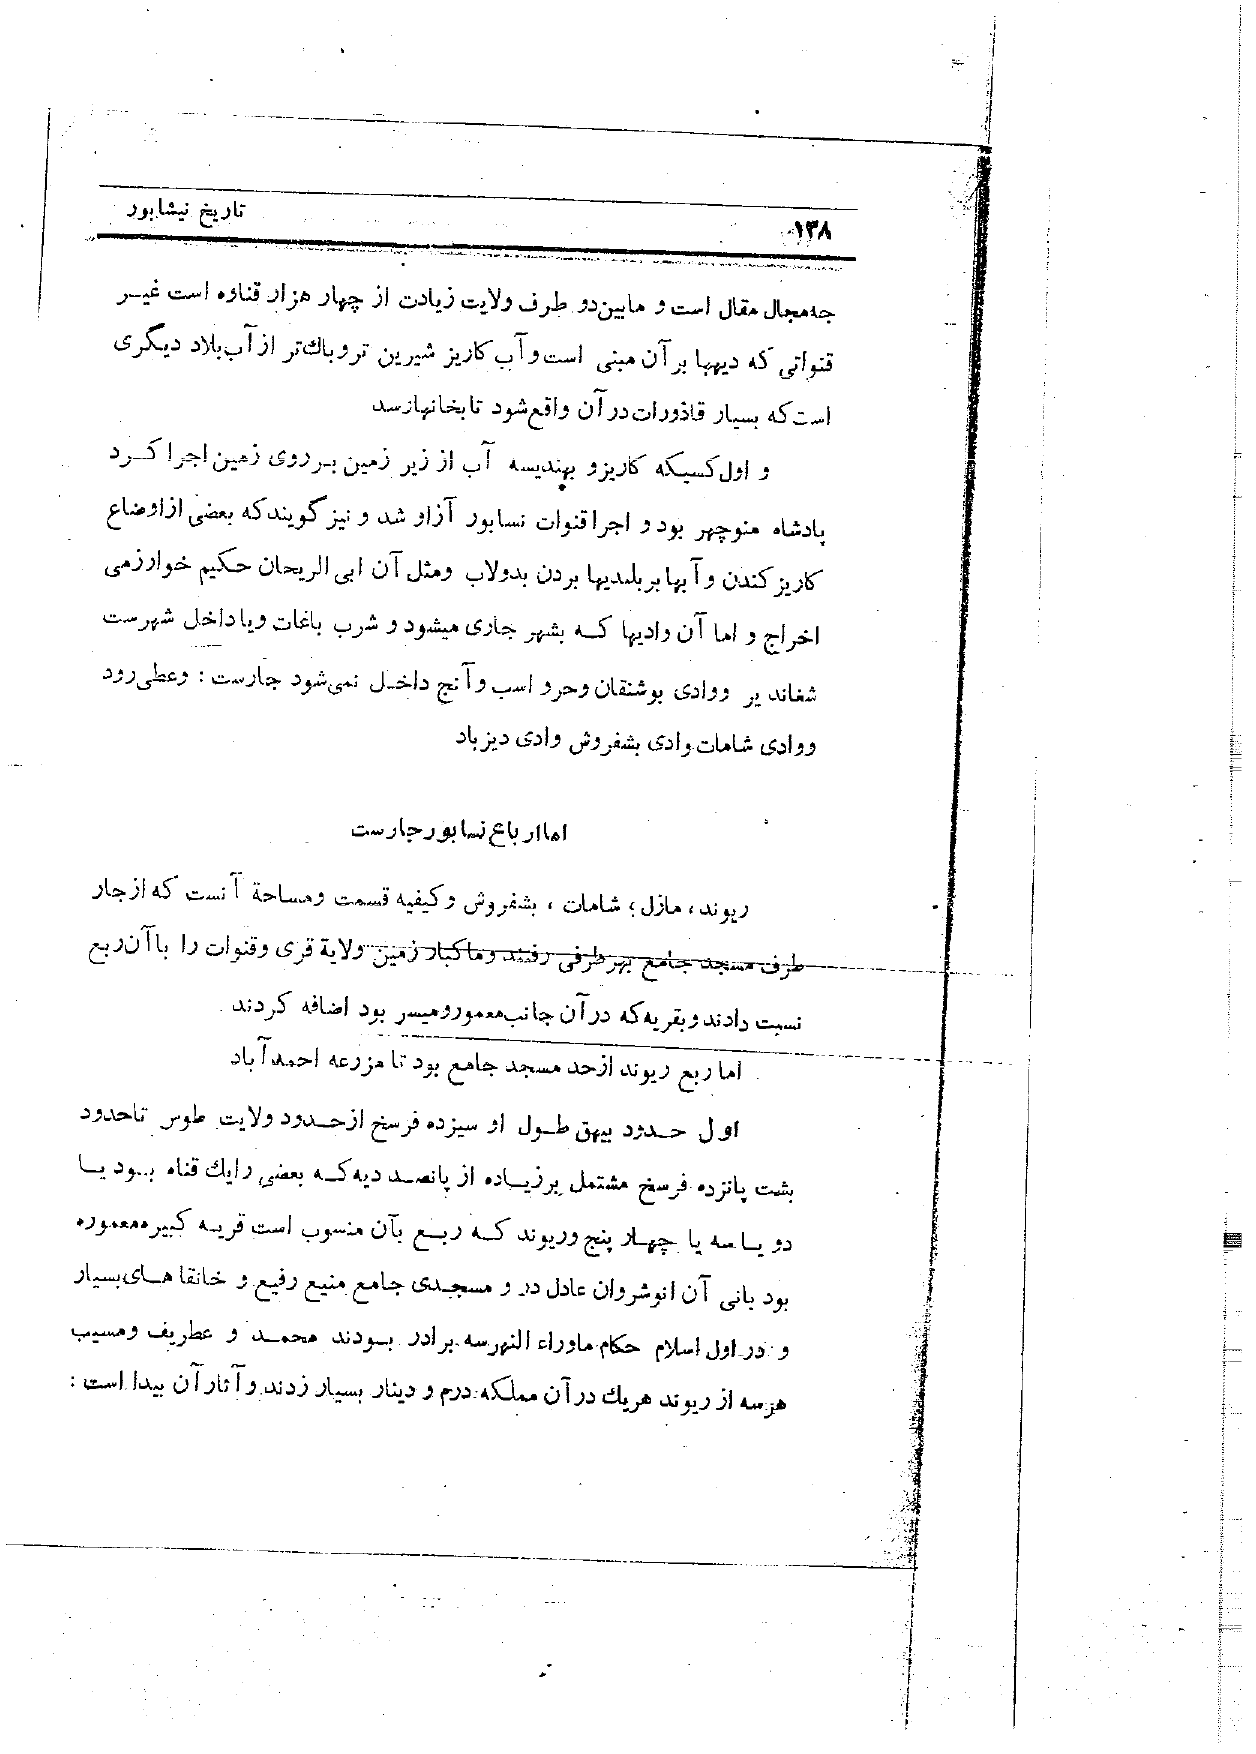 تاریخ نیشابور
۱۳۸
چه مجال مقال است و مابین دو طرف ولایت زیادت از چهار هزار قناوه است غیر
قنواتی که دیهها بر آن مبنی است و آب کاریز شیرین تر و پاک‌تر از آب بلاد دیگری
است که بسیار قاذورات در آن واقع شود تا بخانها رسد
و اول کسیکه کاریز و بهندیسه آب از زیر زمین بر روی زمین اجرا کرد
پادشاه منوچهر بود و اجرا قنوات نسابور آزاو شد و نیز گویند که بعضی از اوضاع
کاریز کندن و آبها بر بلندیها بردن بدولاب ومثل آن ابی الریحان حکیم خوارزمی
اخراج و اما آن وادیها که بشهر جاری میشود و شرب باغات ویا داخل شهرست
شغاند یر ووادی بوشتقان وحرو اسب وآنچ داخل نمی‌شود چارست : وعطی رود
ووادی شامات وادی بشفروش وادی دیزباد
اما ارباع نسابور چارست
ریوند، مازل؛ شامات، بشفروش وکیفیه قسمت ومساحة آنست که از چار
طرف مسجد جامع بهر طرفی رفتند وما کبار زمین ولایة قری وقنوات را با آن ربع
نسبت دادند وبقریه که در آن جانب معمور ومیسر بود اضافه کردند
اما ربع ریوند از حد مسجد جامع بود تا مزرعه احمد آباد
اول حدود بیهق طول او سیزده فرسخ از حدود ولایت طوس تا حدود
بشت پانزده فرسخ مشتمل بر زیاده از پانصد دیه که بعضی را یك قناه بود یا
دو یا سه یا چهار پنج وریوند که ربع بآن منسوب است قریه کبیره معموره
بود بانی آن انوشروان عادل در و مسجدی جامع منیع رفیع و خانقاهای بسیار
و در اول اسلام حکام ماوراء النهر سه برادر بودند محمد و عطریف ومسیب
هر سه از ریوند هریك در آن مملکه درم و دینار بسیار زدند و آثار آن پیدا است :